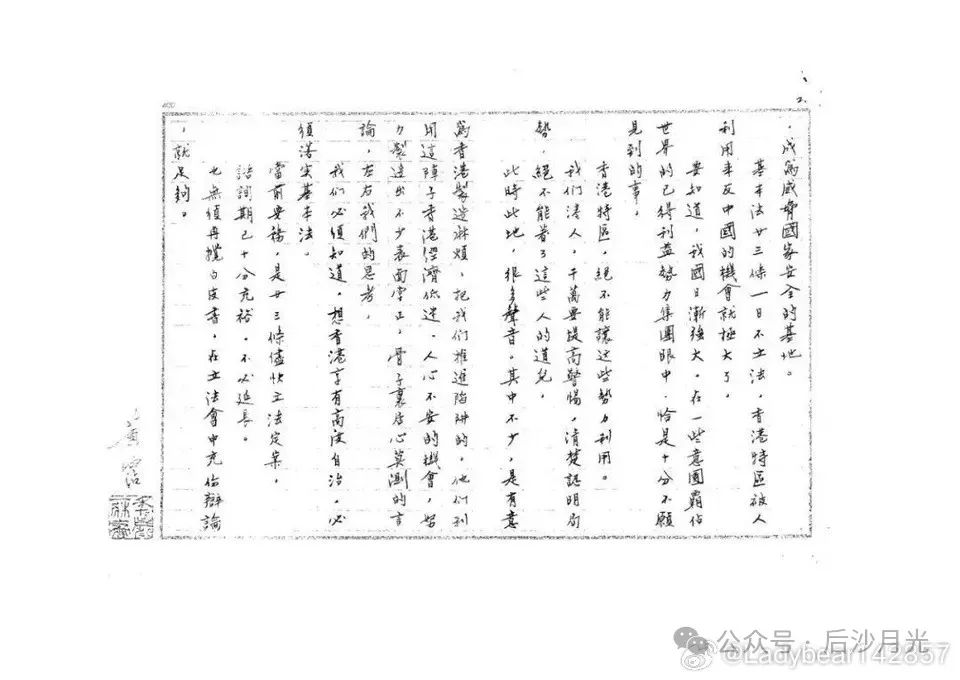 2.
，成為威脅國家安全的基地。
基本法廿三條一日不立法，香港特區被人
利用来反中國的機會就極大了，
要知道，我國日漸強大。在一些意圖覇佔
世界的已得利益勢力集團眼中，恰是十分不願
見到的事。
香港特區，絕不能讓這些勢力利用。
我们港人，千萬要提高警惕，清楚認明局
勢，絕不能着了這些人的道兒，
此時此地，很多聲音，其中不少，是有意
為香港製造麻煩，把我们推進陷阱的，他们利
用這陣子香港經濟低迷，人心不安的機會，努
力製造出不少表面堂正，骨子裏居心莫測的言
論，左右我們的思考，
我们必須知道，想香港享有高度自治，必
須落实基本法。
當前要務，是廿三條儘快立法定案，
諮詢期已十分充裕，不必延長。
也無須再攪白皮書，在立法會中充份辯論
，就足夠。
黃霑
公众号·后沙月光
@Ladybear142857